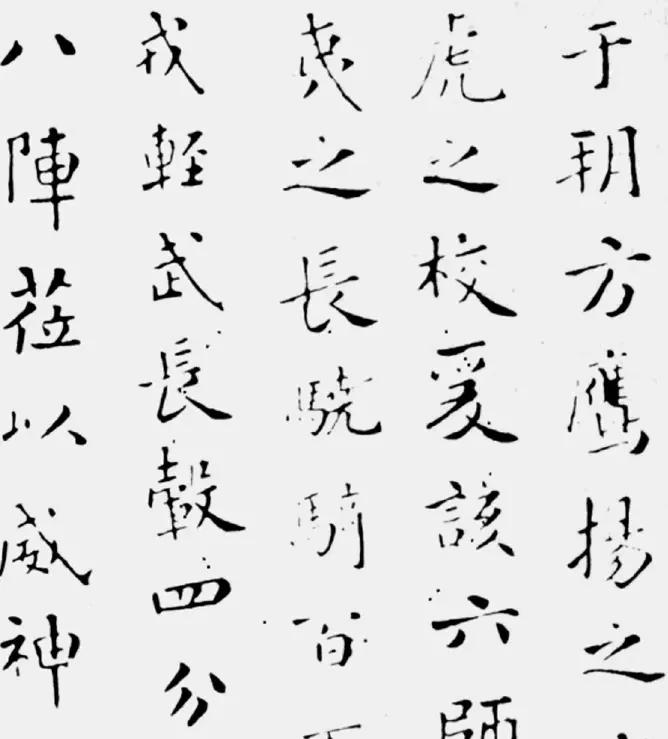 于朔方鷹揚之
虎之校爰該六師
之長驍騎百
戎輕武長轂四分
八陣莅以威神